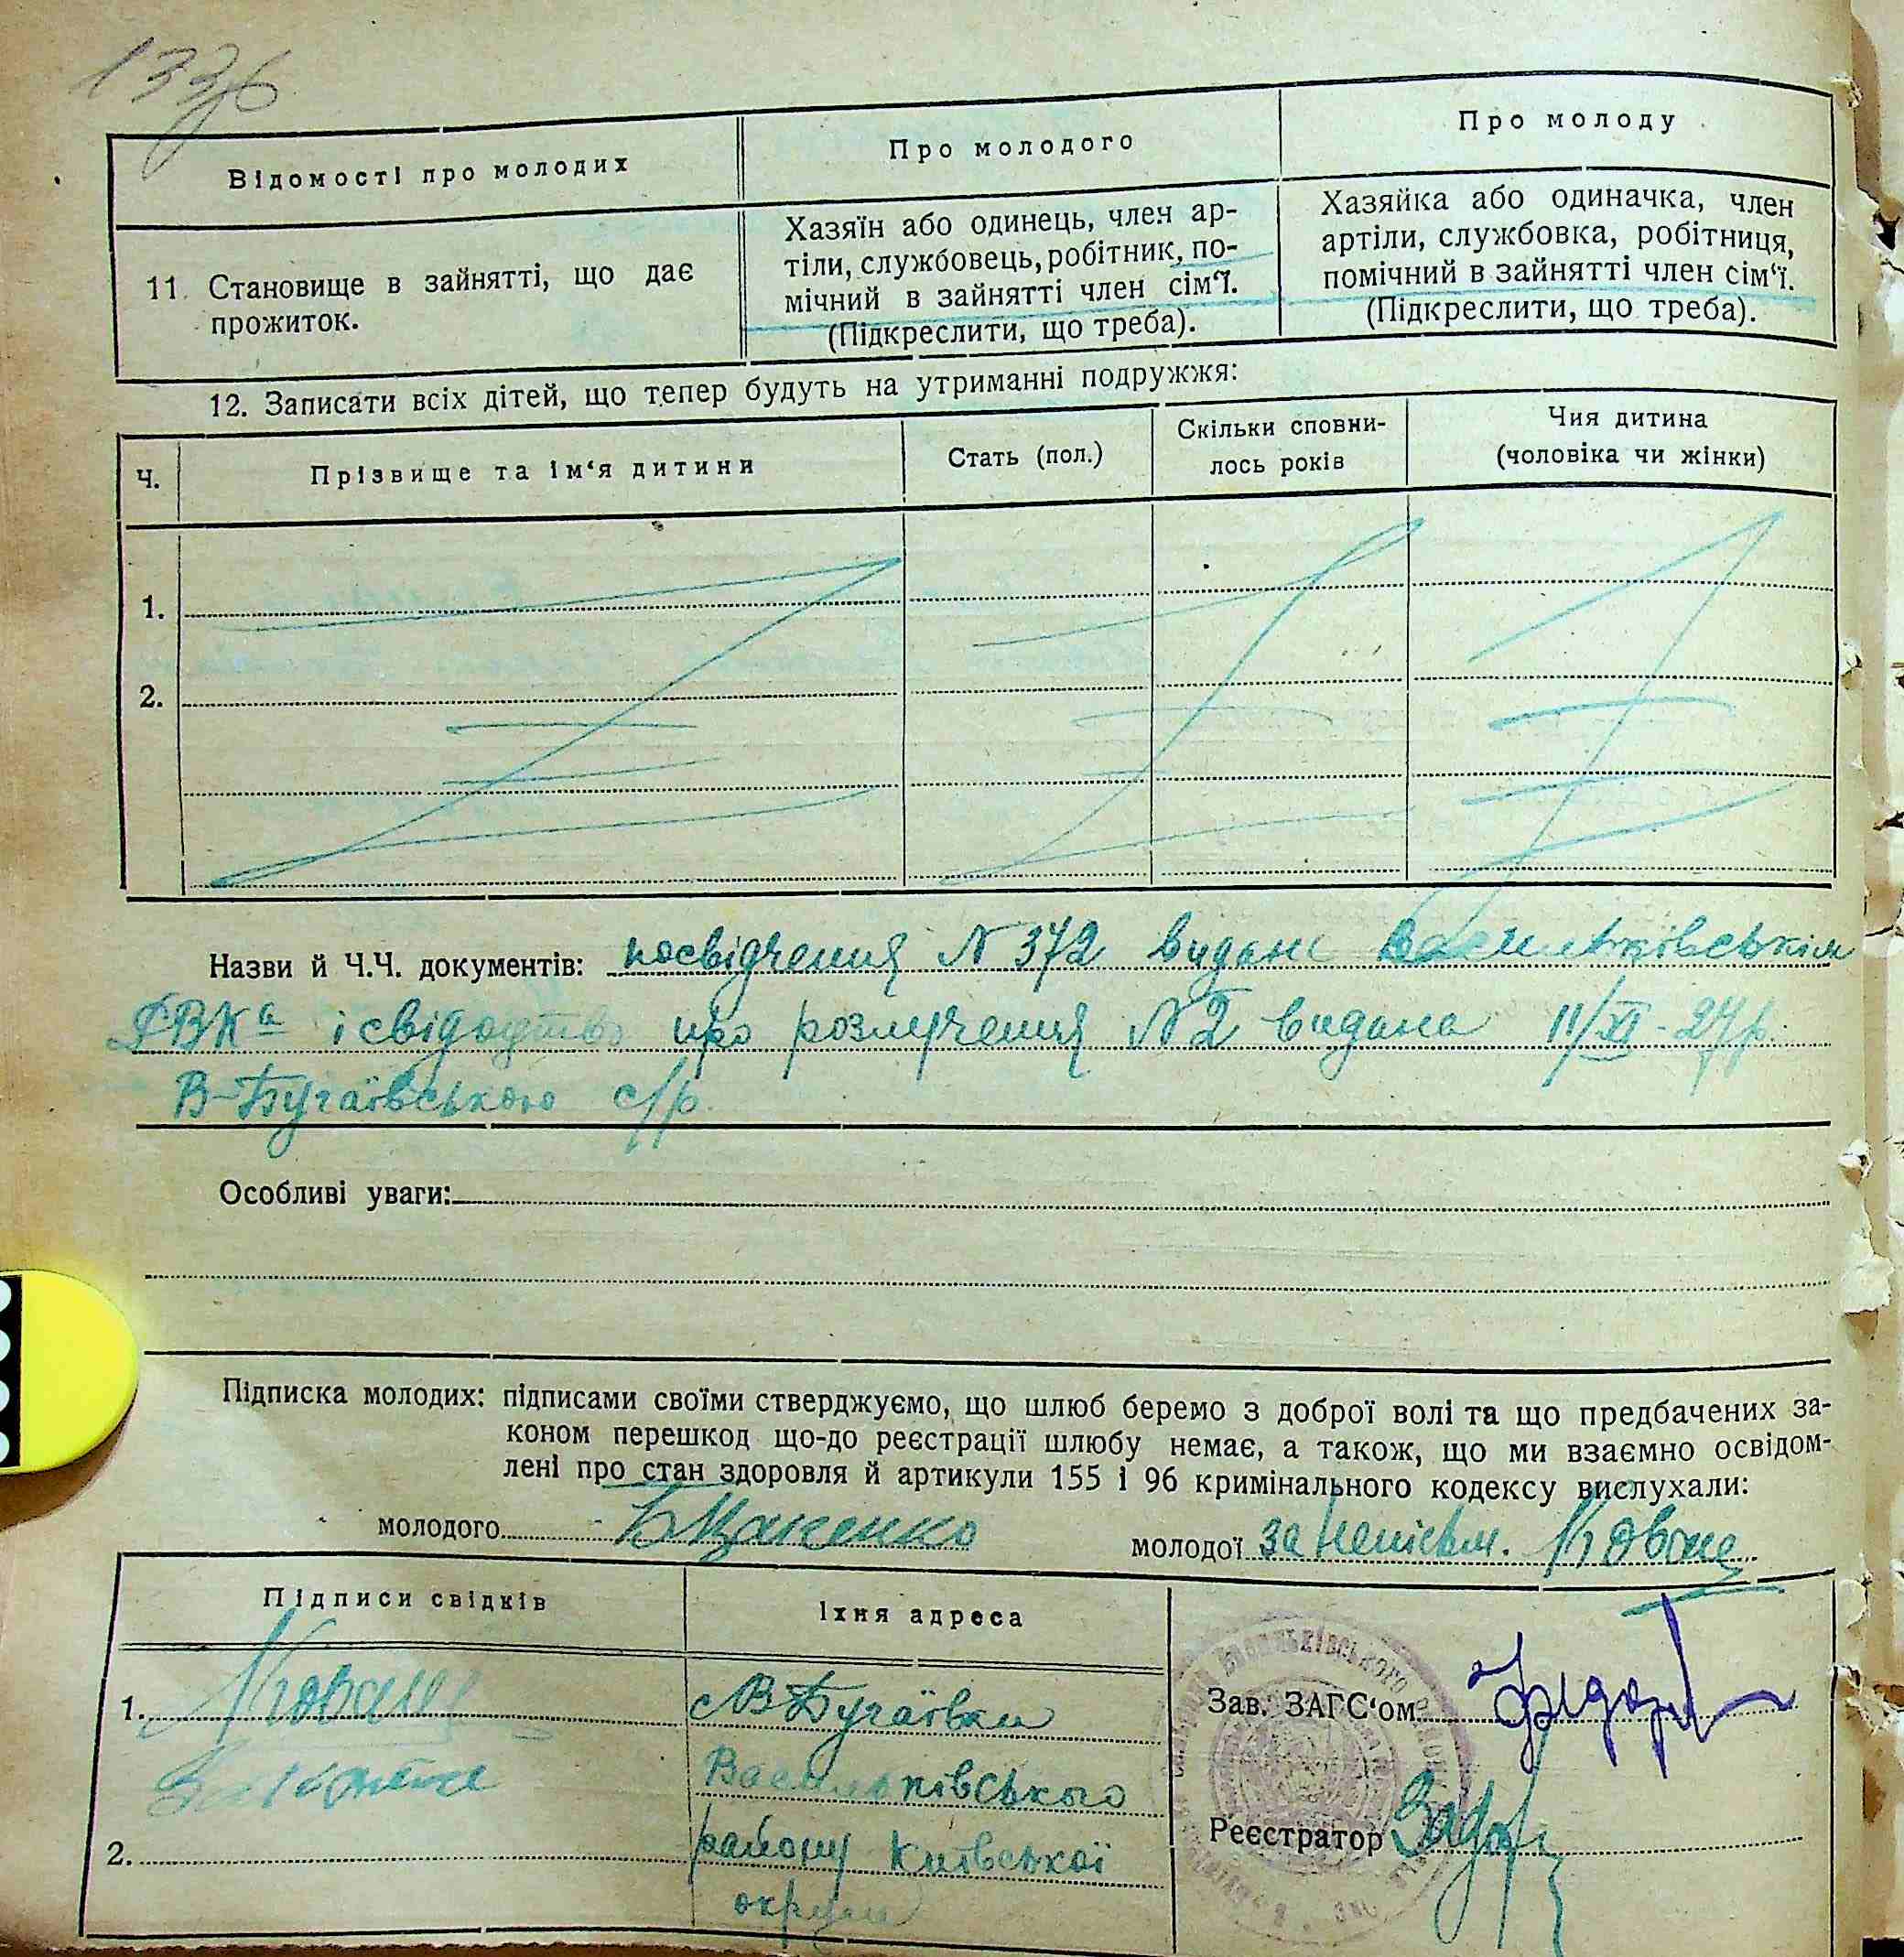 133б
Відомості про молодих
Про молодого
Про молоду
11. Становище в зайнятті, що дає
прожиток.
Хазяїн або одинець, член ар-
тіли, службовець, робітник, по-
мічний в зайнятті член сім‘ї.
(Підкреслити, що треба).
Хазяйка або одиначка, член
артіли, службовка, робітниця,
помічний в зайнятті член сім‘ї.
(Підкреслити, що треба).
12. Записати всіх дітей, що тепер будуть на утриманні подружжя:
Ч.
Прізвище та ім‘я дитини
Стать (пол.)
Скільки сповни-
лось років
Чия дитина
(чоловіка чи жінки)
1.
2.
Назви й Ч.Ч. документів: посвідчення N 372 видане Васильківськім
РВКа і свідодтво про розлучення N2 видана 11/XI-27р.
В-Бугаївською с/р
Особливі уваги:
Підписка молодих: підписами своїми стверджуємо, що шлюб беремо з доброї волі та що предбачених за-
коном перешкод що-до реєстрації шлюбу немає, а також, що ми взаємно освідом-
лені про стан здоровля й артикули 155 і 96 кримінального кодексу вислухали:
молодого
молодої за неписьм.
Підписи свідків
Їхня адреса
1.
с В Бугаївки
Васильківського
району Київської
округи
2.
Зав. ЗАГС‘ом
Реєстратор